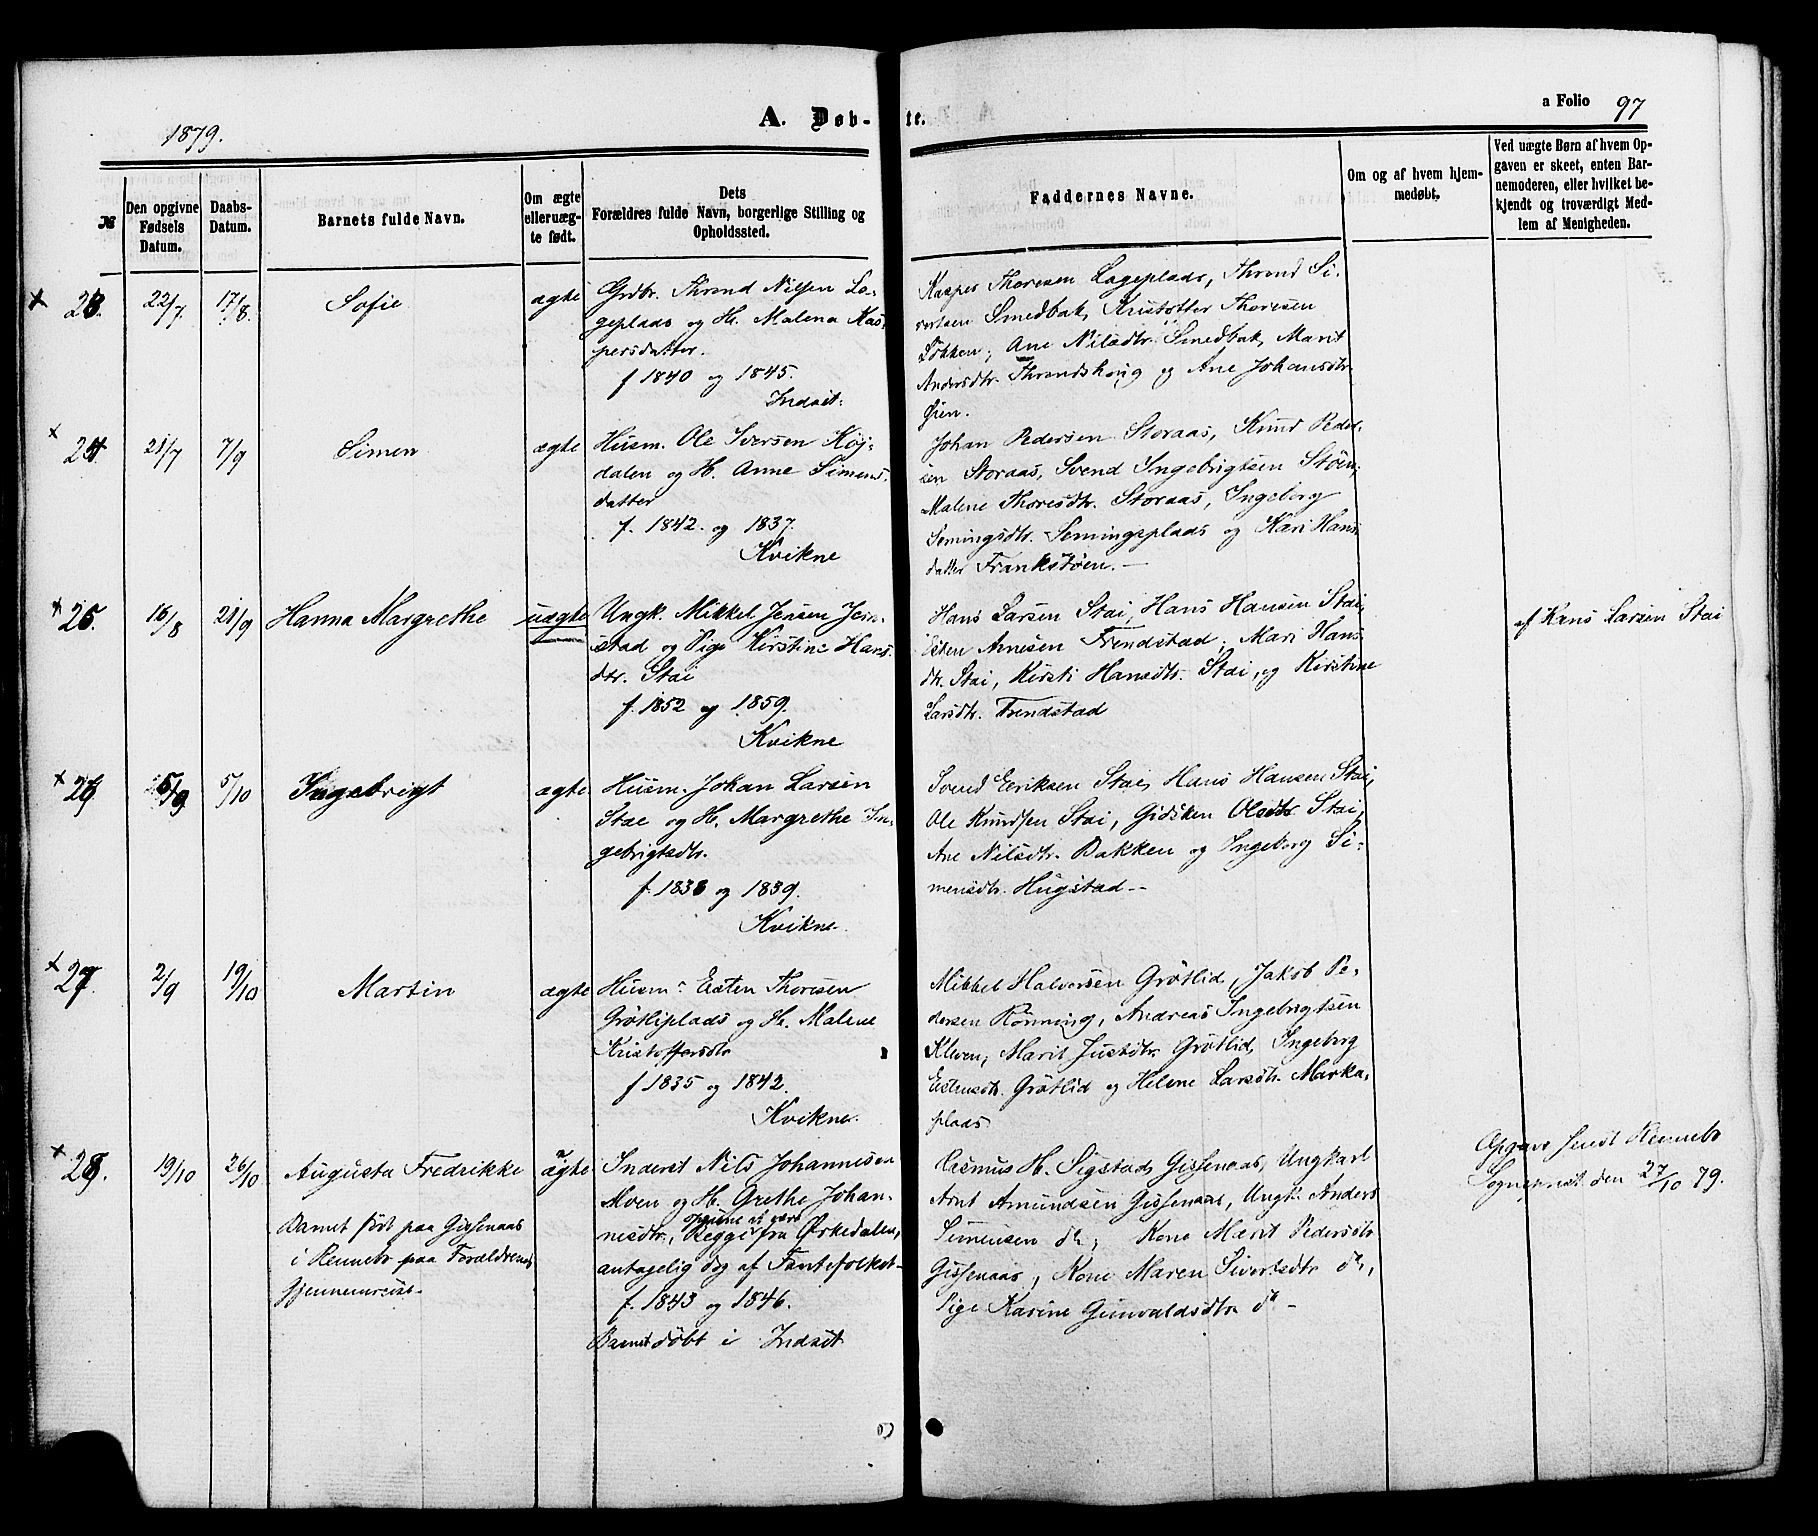 1879.
A. Døb-
te.
a Folio 97
№
Den opgivne
Fødsels
Datum.
Daabs-
Datum.
Barnets fulde Navn.
Om ægte
eller uæg-
te født.
Dets
Forældres fulde Navn, borgerlige Stilling og
Opholdssted.
Faddernes Navne.
Om og af hvem hjem-
medøbt.
Ved uægte Børn af hvem Op-
gaven er skeet, enten Bar-
nemoderen, eller hvilket be-
kjendt og troværdigt Med-
lem af Menigheden.
23.
22/7
17/8.
Sofie
ægte
Grdbr. Thrond Nilsen La-
geplads og H. Malena Kas-
persdatter.
f 1840 og 1845.
Indset.
Kasper Thoresen Lageplads, Thrond Si-
vertsen Smedbak, Kristoffer Thoresen
Løkken; Ane Nilsdtr. Smedbak, Marit
Andersdtr. Throndshoug og Ane Johansdtr
Øien.
24.
21/7
7/9
Simen
ægte
Husm. Ole Iversen Køj-
dalen og H. Anne Simens-
datter
f. 1842. og 1837.
Kvikne
Johan Pedersen Storaas, Knud Peder-
sen Storaas, Svend Ingebrigtsen Støen;
Malene Thoresdtr. Storaas, Ingeborg
Semingsdtr. Semingsplads og Kari Hans
datter Frankstøen. —
25.
16/8
21/9
Hanna Margrethe
uægte
Ungk. Mikkel Jensen Jern-
stad og Pige Kirstine Hans
dtr. Stai
f. 1852 og 1859.
Kvikne
Hans Larsen Stai, Hans Hansen Stai,
Esten Arnesen Frendstad; Mari Hans
dtr. Stai, Kirsti Hansdtr. Stai, og Kirstine
Larsdtr. Frendstad
af Hans Larsen Stai
26.
5/9
5/10
Ingebrigt
ægte
Husm. Johan Larsen
Stae og H. Margrethe In-
gebrigtsdtr.
f. 1838 og 1839.
Kvikne.
Svend Eriksen Stai, Hans Hansen Stai,
Ole Knudsen Stai, Gidsken Olsdtr Stai,
Ane Nilsdtr. Bakken og Ingeborg Si-
mensdtr. Hugstad —
27.
2/9
19/10
Martin
ægte
Husm. Esten Thoresen
Grøtliplads og H. Malene
Kristoffersdtr
f 1835 og 1842.
Kvikne.
Mikkel Halvorsen Grøtlid, Jakob Pe-
dersen Rønning, Andreas Ingebrigtsen
Kleven; Marit Justdtr. Grøtlid, Ingeborg
Estensdtr. Grøtlid og Helene Larsdtr. Marka-
plads.
28.
19/10
26/10
Augusta Fredrikke
ægte
Barnet født paa Gissenaas
i Rennebo paa Forældrenes
Gjennemreise.
Inderst Nils Johannesen
Moen og H. Grethe Johan-
nesdtr., Begge fra Ørkedalen,
opgivne at være
antagelig dog af Fantefolket.
f. 1843 og 1846.
Barnet døbt i Indset
Rasmus H. Sigstad, Gissenaas, Ungkarl
Arnt Amundsen Gissenaas, Ungk. Anders
Simensen do; Kone Marit Pedersdtr
Gissenaas, Kone Maren Sivertsdtr do,
Pige Karine Gunvaldsdtr do —
Opgave sendt Rennebo
Sogneprest den 27/10 79.